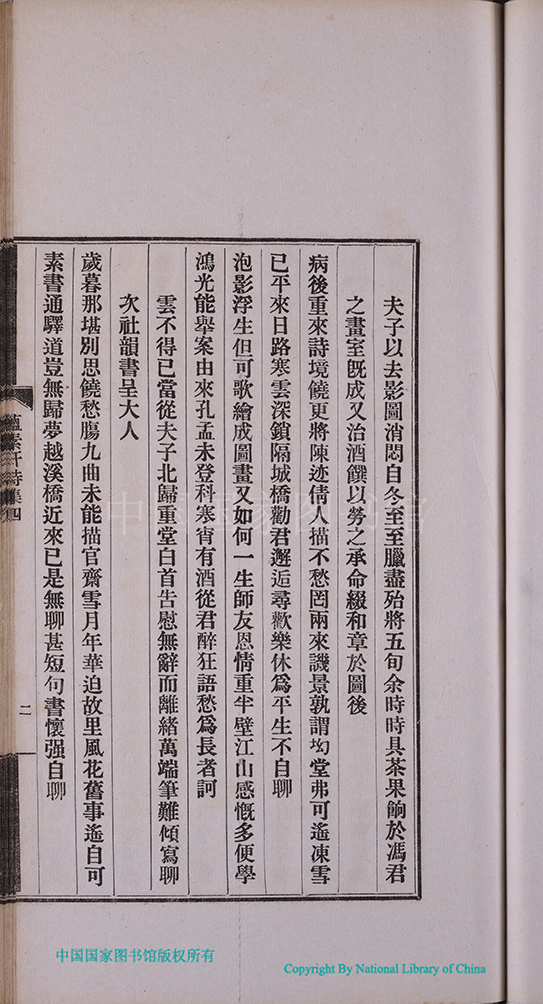 夫子以去影圖消悶自冬至至臘盡殆將五旬余時時具茶果餉於馮君
之畫室旣成又治酒饌以勞之承命綴和章於圖後
病後重來詩境饒更將陳迹倩人描不愁罔兩來譏景孰謂坳堂弗可遙凍雪
已平來日路寒雲深鎖隔城橋勸君邂逅尋歡樂休爲平生不自聊
泡影浮生但可歌繪成圖畫又如何一生師友恩情重半壁江山感慨多便學
鴻光能舉案由來孔孟未登科寒宵有酒從君醉狂語愁爲長者訶
雲不得已當從夫子北歸重堂白首吿慰無辭而離緒萬端筆難傾寫聊
次社韻書呈大人
歲暮那堪別思饒愁腸九曲未能描官齋雪月年華迫故里風花舊事遙自可
素書通驛道豈無歸夢越溪橋近來已是無聊甚短句書懷强自聊
蘊素軒詩集四
二
中国国家图书馆
中国国家图书馆版权所有
Copyright By National Library of China